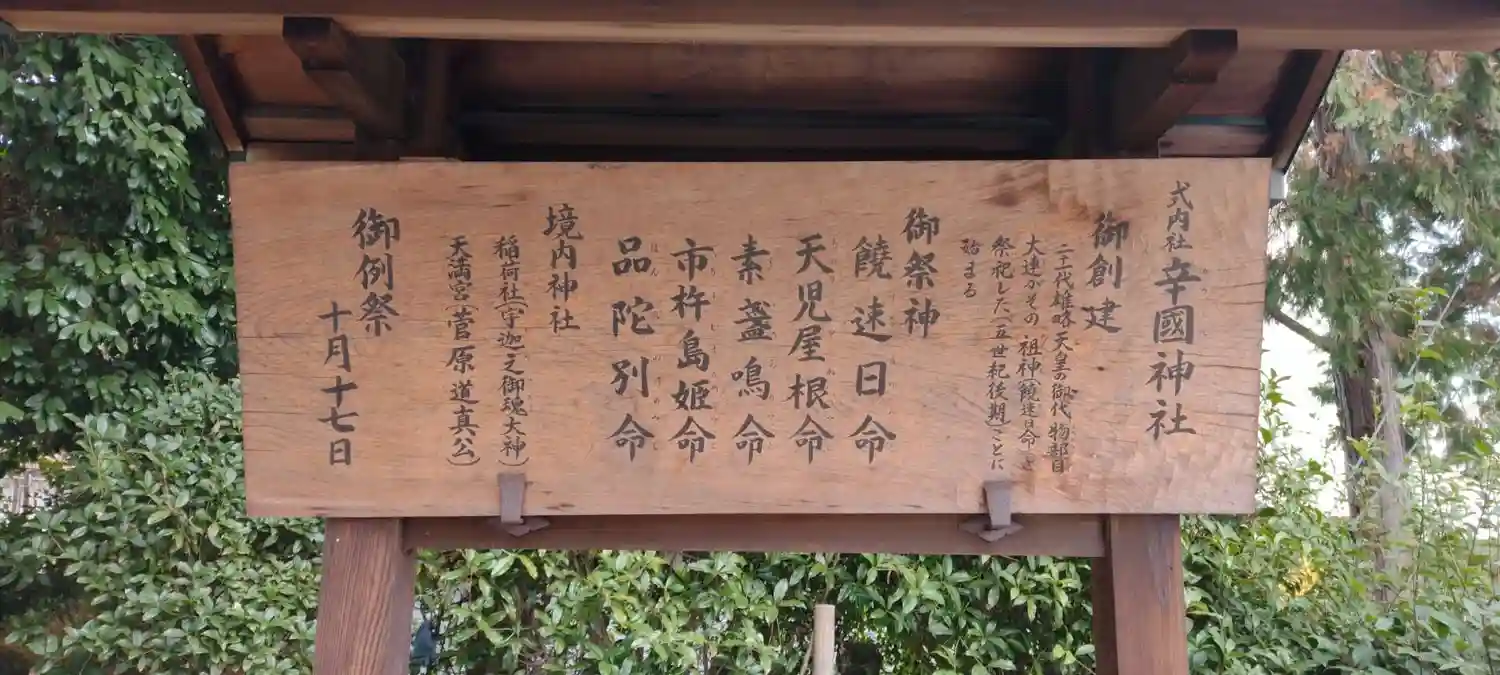 式内社 辛國神社
御創建
二十一代雄略天皇の御代 物部目
大連がその祖神(饒速日命)を
祭祀した(五世紀後期)ことに
始まる
御祭神
饒速日命
天児屋根命
素盞鳴命
市杵島姫命
品陀別命
境内神社
稲荷社(宇迦之御魂大神)
天満宮(菅原道真公)
御例祭
十月十七日